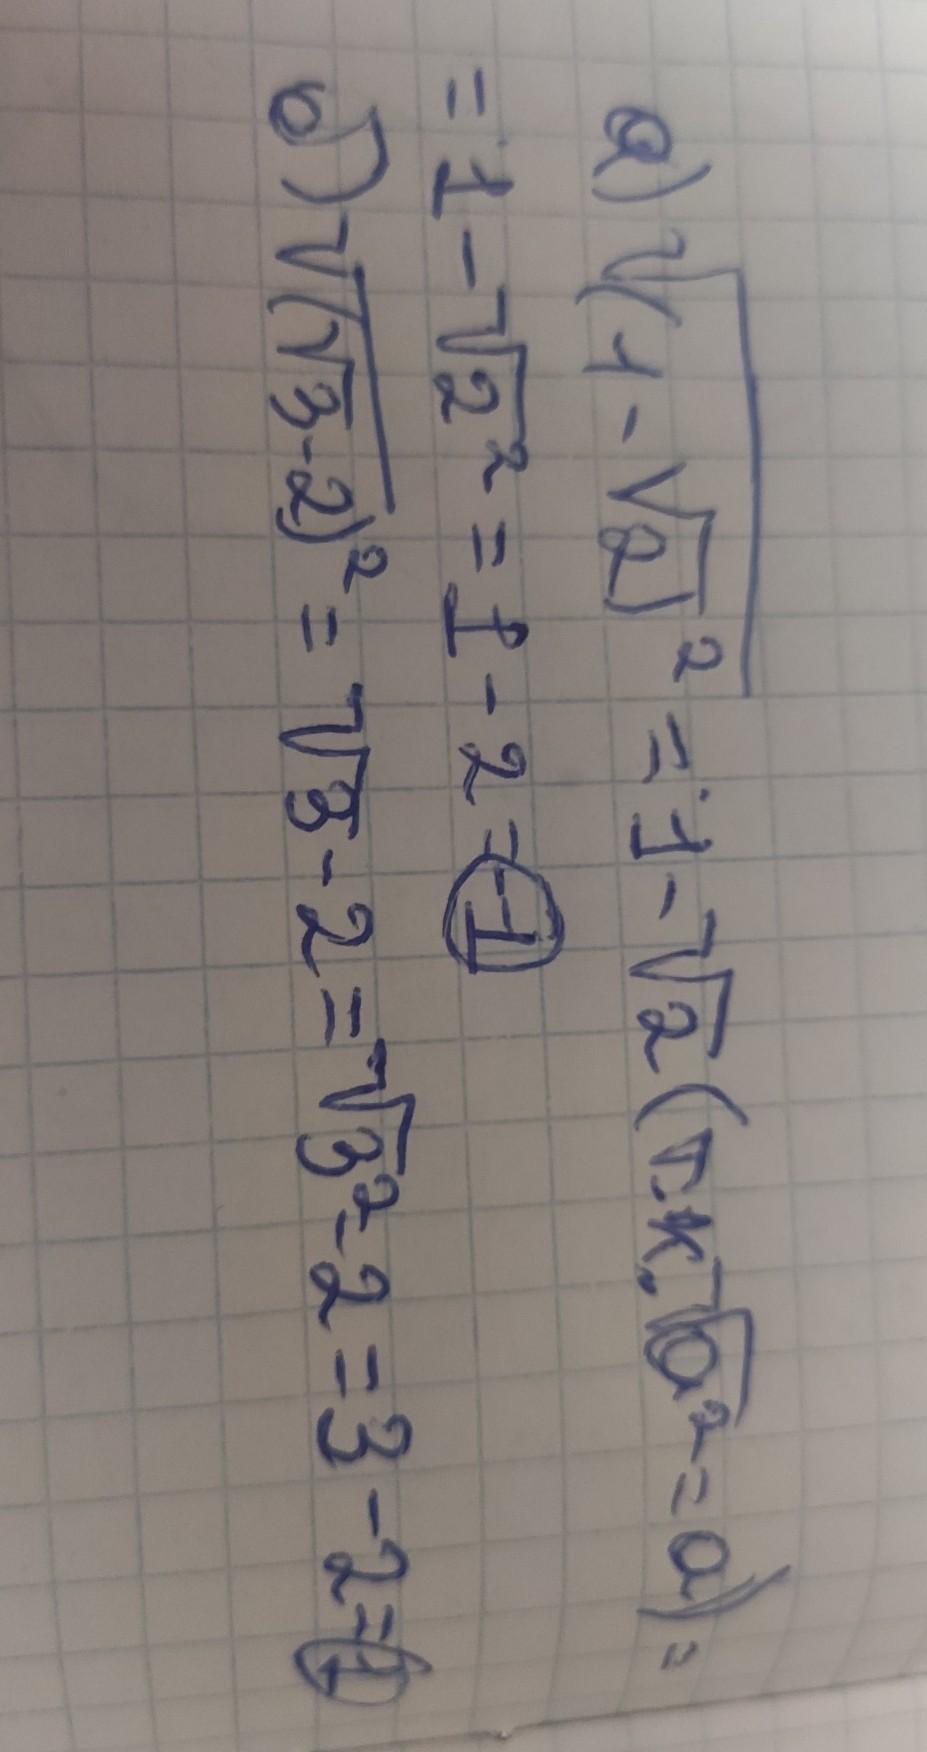 а) √(1-√2)² = 1-√2 (т.к. √a² = a) =
= 1 - √2² = 1 - 2 = -1
б) √(√3-2)² = √3 - 2 = √3² - 2 = 3 - 2 = 1